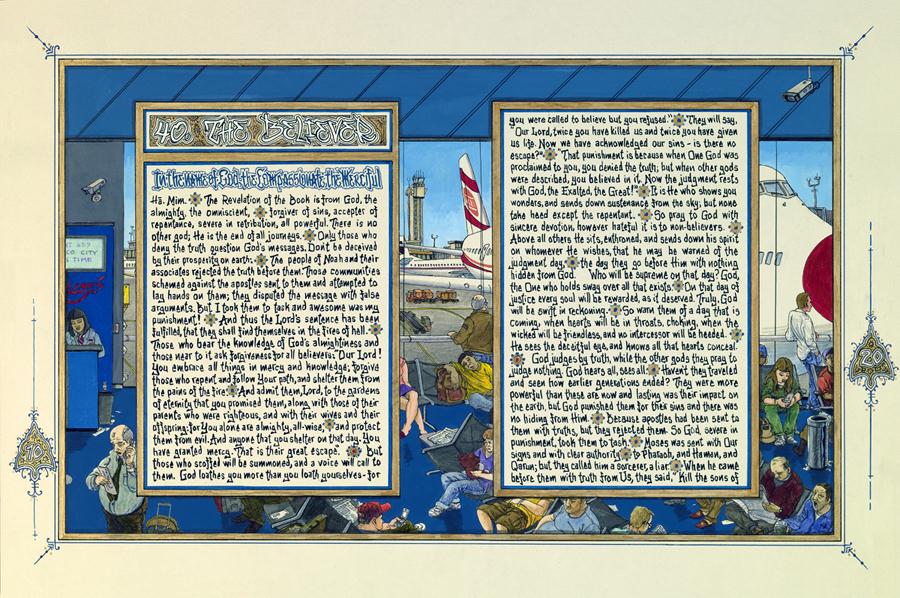 40. THE BELIEVER
In the name of God, the Compassionate, the Merciful
Hā. Mīm. The Revelation of the Book is from God, the
almighty, the omniscient, forgiver of sins, accepter of
repentance, severe in retribution, all powerful. There is no
other god; He is the end of all journeys. Only those who
deny the truth question God's messages. Don't be deceived
by their prosperity on earth. The people of Noah and their
associates rejected the truth before them. Those communities
schemed against the apostles sent to them and attempted to
lay hands on them; they disputed the message with false
arguments. But I took them to task and awesome was my
punishment! And thus the Lord's sentence has been
fulfilled, that they shall find themselves in the fires of hell.
Those who bear the knowledge of God's almightiness and
those near to it ask forgiveness for all believers: "Our Lord!
You embrace all things in mercy and knowledge; forgive
those who repent and follow Your path, and shelter them from
the pains of the fire. And admit them, Lord, to the gardens
of eternity that you promised them, along with those of their
parents who were righteous, and with their wives and their
offspring; for You alone are almighty, all-wise; and protect
them from evil. And anyone that you shelter on that day, You
have granted mercy. That is their great escape." But
those who scoffed will be summoned, and a voice will call to
them. God loathes you more than you loath yourselves - for
you were called to believe but you refused." They will say,
"Our Lord, twice you have killed us and twice you have given
us life. Now we have acknowledged our sins - is there no
escape?" "That punishment is because when One God was
proclaimed to you, you denied the truth; but when other gods
were described, you believed in it. Now the judgment rests
with God, the Exalted, the Great!" It is He who shows you
wonders, and sends down sustenance from the sky; but none
take heed except the repentant. So pray to God with
sincere devotion, however hateful it is to non-believers.
Above all others He sits, enthroned, and sends down his spirit
on whomever He wishes, that he may be warned of the
judgment day, the day they go before Him with nothing
hidden from God. Who will be supreme on that day? God,
the One who holds sway over all that exists. On that day of
justice every soul will be rewarded, as it deserved. Truly, God
will be swift in reckoning. So warn them of a day that is
coming, when hearts will be in throats, choking, when the
wicked will be friendless, and no intercessor will be heeded.
He sees the deceitful eye, and knows all that hearts conceal.
God judges by truth, while the other gods they pray to
judge nothing. God hears all, sees all. Haven't they traveled
and seen how earlier generations ended? They were more
powerful than these are now and lasting was their impact on
the earth, but God punished them for their sins and there was
no hiding from Him. Because apostles had been sent to
them with truths, but they rejected them. So God, severe in
punishment, took them to task. Moses was sent with Our
signs and with clear authority to Pharaoh, and Haman, and
Qarun; but they called him a sorcerer, a liar. When he came
before them with truth from Us, they said, "Kill the sons of
CO CITY
TIME
10
20